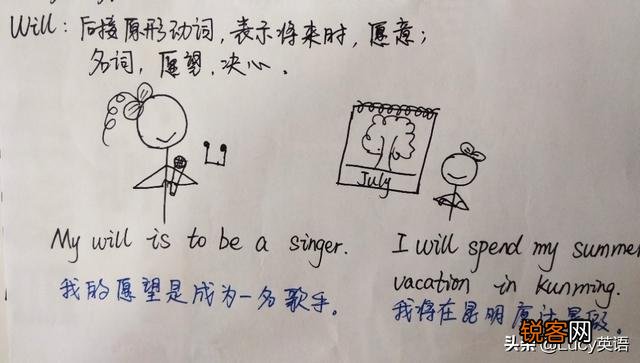 Will: 后接原形动词，表示将来时，愿意；
名词，愿望，决心。
July
My will is to be a singer.
我的愿望是成为一名歌手。
I will spend my summer
vacation in kunming.
我将在昆明度过暑假。
锐客网
头条 @Lucy英语